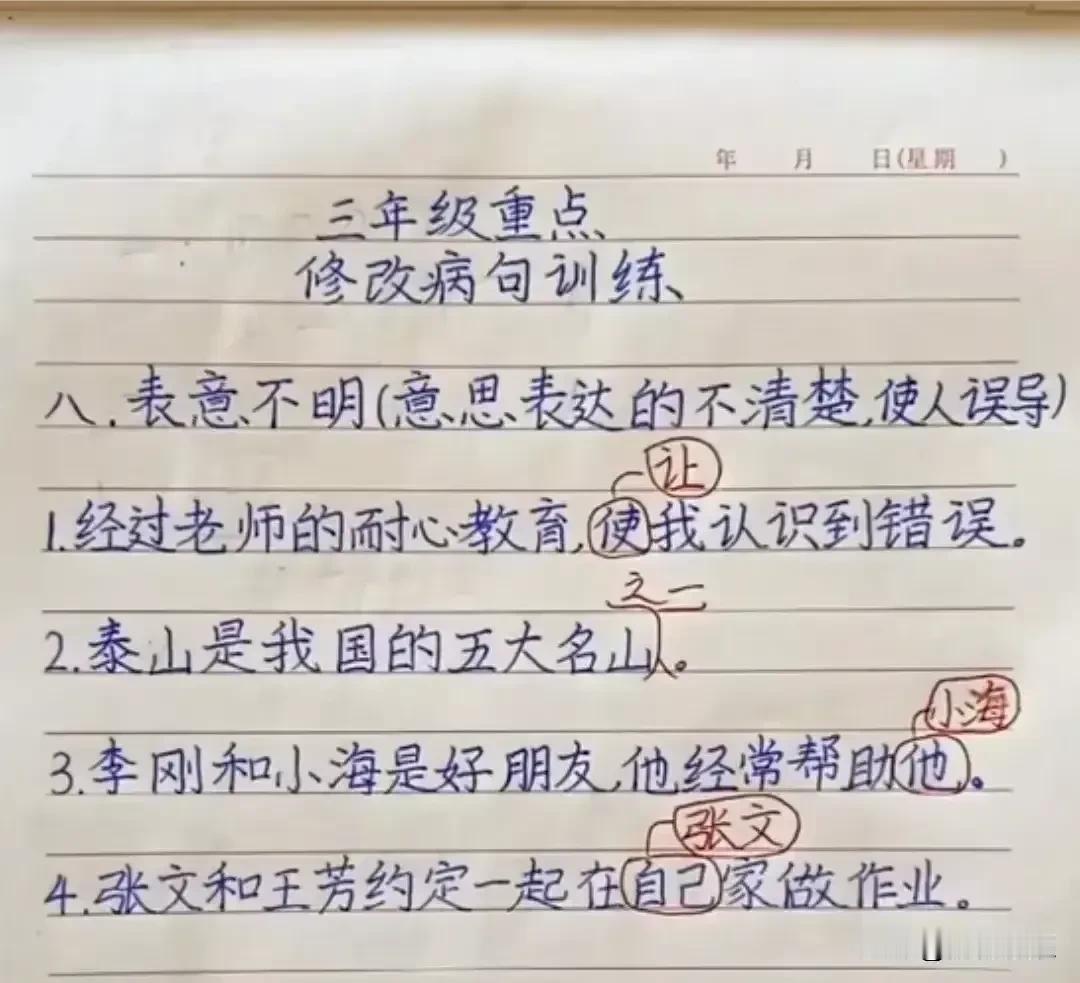 年 月 日(星期 )
三年级重点
修改病句训练
八.表意不明(意思表达的不清楚,使人误导)
让
1.经过老师的耐心教育,使我认识到错误。
之一
2.泰山是我国的五大名山。
小海
3.李刚和小海是好朋友,他经常帮助他。
张文
4.张文和王芳约定一起在自己家做作业。